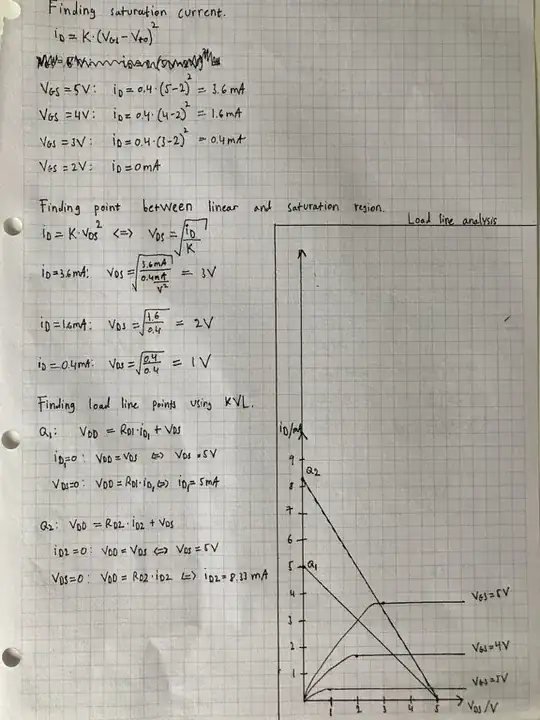 Finding saturation current.
iD = K·(VGS - Vto)²
VGS = 5V: iD = 0.4·(5-2)² = 3.6mA
VGS = 4V: iD = 0.4·(4-2)² = 1.6mA
VGS = 3V: iD = 0.4·(3-2)² = 0.4mA
VGS = 2V: iD = 0mA
Finding point between linear and saturation region.
iD = K·VDS² <=> VDS = √(iD/K)
iD = 3.6mA: VDS = √(3.6mA/(0.4mA/V²)) = 3V
iD = 1.6mA: VDS = √(1.6/0.4) = 2V
iD = 0.4mA: VDS = √(0.4/0.4) = 1V
Finding load line points using KVL.
Q1: VDD = RD1·iD1 + VDS
iD1=0: VDD = VDS <=> VDS = 5V
VDS=0: VDD = RD1·iD1 <=> iD1 = 5mA
Q2: VDD = RD2·iD2 + VDS
iD2=0: VDD = VDS <=> VDS = 5V
VDS=0: VDD = RD2·iD2 <=> iD2 = 8.33 mA
Load line analysis
iD/mA
9
Q2
8
7
6
5
Q1
4
VGS=5V
3
2
VGS=4V
1
VGS=3V
1 2 3 4 5 VDS/V